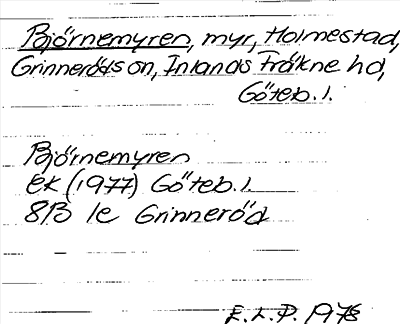 Björnemyren, myr, Holmestad,
Grinneröds sn, Inlands Fräkne hd,
Göteb. l.
Björnemyren
ek (1977) Göteb. l.
8B 1e Grinneröd
E. L. P. 1978